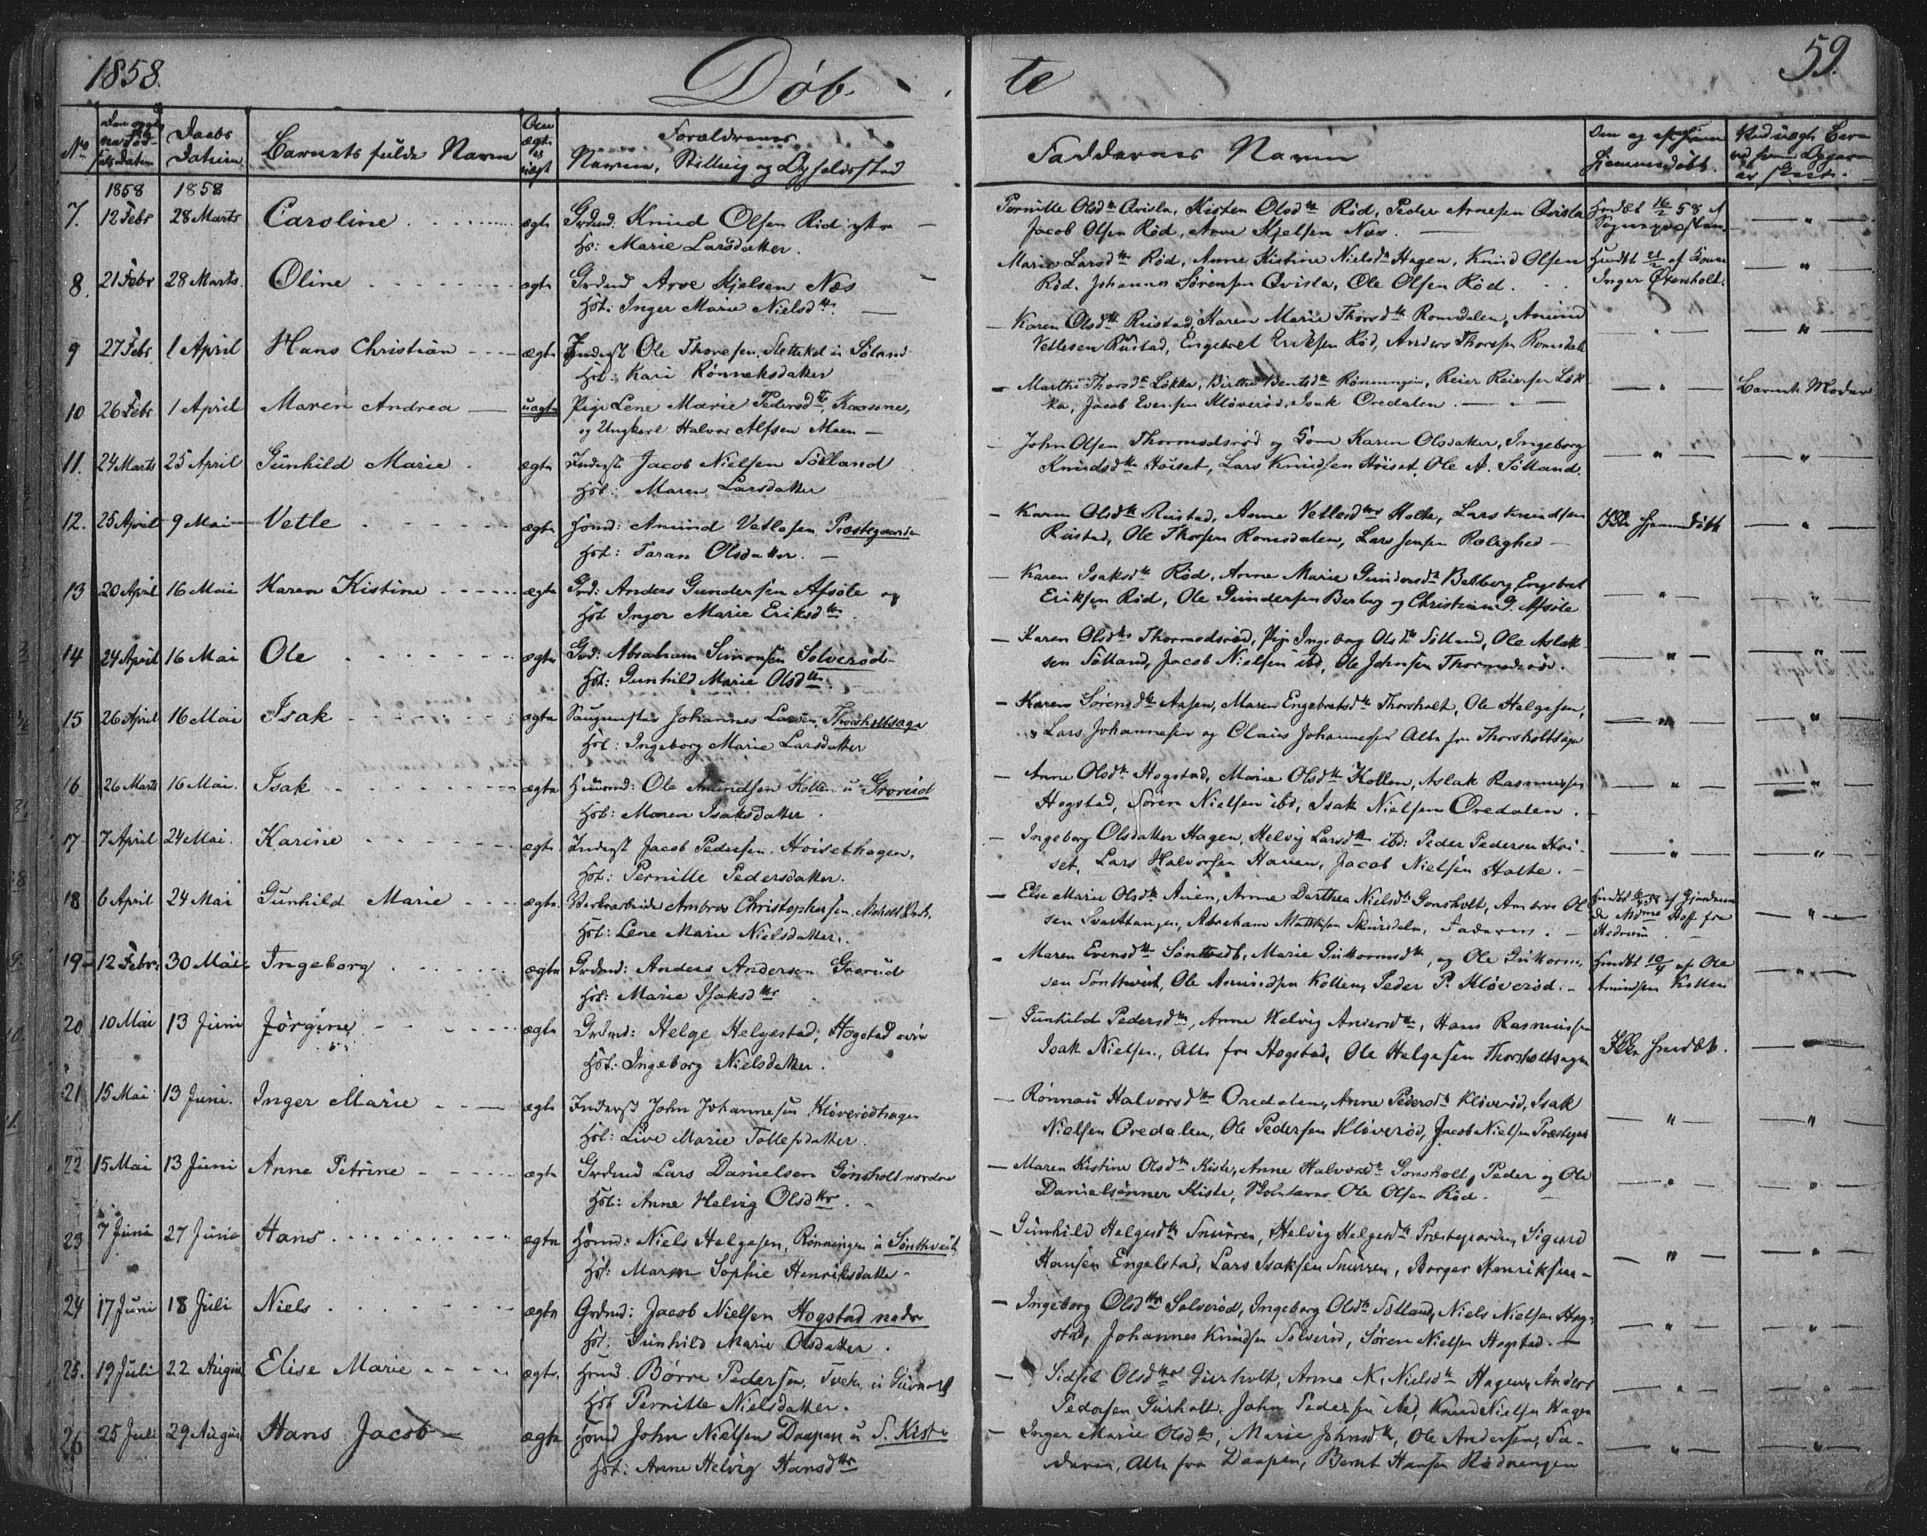 1858.
Döb
te
59.
No
Barnets fulde Navn
Forældrenes
Navne, Stilling og Opholdssted
Faddernes Navne
1858 1858
7. 12 Febr 28 Marts Caroline ægte Grdmd. Knud Olsen Röd
Hs: Marie Larsdatter.
Pernille Olsdtr Qvisla, Kisten Olsdtr Röd, Peder Arnesen Qvisla
Jacob Olsen Röd, Arve Kjelsen Næs.
8. 21 Febr 28 Marts. Oline ægte Grdmd Arve Kjelsen Næs
Hst: Inger Marie Nielsdtr.
Maria Larsdtr Röd, Anne Kistine Nielsdtr Hagen, Knud Olsen
Röd, Johannes Sörensen Qvisla, Ole Olsen Röd.
Inger Ötenholt.
9 27 Febr 1 April Hans Christian ægte Inderst Ole Thoresen
Hst: Kari Rönneksdatter
Karen Olsdtr Rustad, Karen Marie Thorsdtr Romsdalen, Amund
Vetlesen Rustad, Engebret Eriksen Röd, Anders Thoresen Romsdal
10 26 Febr 1 April Maren Andrea uægte Pige Lene Marie Pedersdtr Kaasene,
og Ungkarl Halvor Alfsen Moen
Marthe Thorsdtr Lökka, Birthe Bentsdtr Rönningen, Reier Reiersen Lök-
ka, Jacob Evensen Klöveröd, Isak Oredalen.
Barnets Moder
11. 24 Marts 25 April Gunhild Marie ægte Inderst Jacob Nielsen Sölland
Hst: Maren Larsdatter
John Olsen Thormodsröd og Kone Karen Olsdatter, Ingeborg
Knudsdtr Höiset, Lars Knudsen Höiset, Ole A. Sölland.
12. 25 April 9 Mai Vetle ægte Hsmd: Amund Vetlesen Præstegaarden
Hst: Taran Olsdatter.
Karen Olsdtr Rustad, Anne Vetlesdtr Holte, Lars Knudsen
Rustad, Ole Thorsen Romsdalen, Lars Jensen Rolighed
Ikke hjemmedöbt
13 20 April 16 Mai Karen Kistine ægte Grd: Anders Gundersen Afsöle og
Hst Inger Marie Eriksdtr.
Karen Isaksdtr Röd, Anne Marie Gundersdtr Berberg, Engebret
Eriksen Röd, Ole Gundersen Berberg og Christian G. Afsöle
14 24 April 16 Mai Ole ægte Grd: Abraham Simonsen Solveröd
Hst: Gunhild Marie Olsdtr.
Karen Olsdtr Thormodsröd, Pige Ingeborg Olsdtr Sölland, Ole Aslak-
sen Sölland, Jacob Nielsen ibd, Ole Johnsen Thormodsröd.
15 26 April 16 Mai Isak ægte Saugmester Johannes Larsen, Thorsholtsaga
Hst: Ingeborg Marie Larsdatter
Karen Sörensdtr Aasen, Maren Engebretsdtr Thorsholt, Ole Helgesen,
Lars Johannesen og Claus Johannesen Alle fra Thorsholtsaga
16 26 Marts 16 Mai. Isak ægte Huusmd: Ole Amundsen Kollen u Goverud
Hst: Maren Isaksdatter.
Anne Olsdtr Hogstad, Marie Olsdtr Kollen, Aslak Rasmussen
Hogstad, Sören Nielsen ibd, Isak Nielsen Oredalen.
17 7 April 24 Mai. Karine ægte Inderst Jacob Pedersen. Höisethagen,
Hst: Pernille Pedersdatter.
Ingeborg Olsdatter Hagen, Helvig Larsdtr ibd: Peder Pedersen Höi-
set, Lars Halvorsen Haven, Jacob Nielsen Holte.
18 6 April 24 Mai Gunhild Marie ægte. Værksarbeider Ambros Christophersen,
Hst: Lene Marie Nielsdatter.
Else Marie Olsdtr Auen, Anne Dorthea Nielsdtr Gonsholt, Ambros Ol
sen Svartangen, Abraham Mathisen Skiursdalen, Faderen.
19 12 Febr. 30 Mai Ingeborg ægte Grdmd: Anders Andersen Goverud
Hst: Marie Isaksdtr
Maren Evensdtr Sönthvedt, Marie Guttormsdtr, og Ole Guttorm-
sen Sönthvedt, Ole Amundsen Kollen, Peder P. Klöveröd.
Hmdbt 10/4 af Ole
Amundsen Kollen
20 10 Mai 13 Juni Jörgine ægte Grdmd: Helge Helgestad, Hogstad övre
Hst: Ingeborg Nielsdatter.
Gunhild Pedersdtr, Anne Helvig Andersdtr, Hans Rasmussen
Isak Nielsen, Alle fra Hogstad, Ole Helgesen Thorsholtsagen
Ikke hmdbt.
21 15 Mai 13 Juni. Inger Marie ægte Inderst John Johannesen Klöverödhagen
Hst: Live Marie Tollefsdatter.
Rönnau Halvorsdtr Oredalen, Anne Pedersdtr Klöveröd, Isak
Nielsen Oredalen, Ole Pedersen Klöveröd, Jacob Nielsen Præstegrd
22 15 Mai 13 Juni Anne Petrine ægte Grdmd Lars Danielsen Gonsholt nordre
Hst: Anne Helvig Olsdtr.
Maren Kistine Olsdtr Kiste, Anne Halvorsdtr Gonsholt, Peder og Ole
Danielsönner Kiste, Ole Olsen Röd.
23 7 Juni 27 Juni Hans ægte Hsmd: Niels Helgesen, Rönningen u Sönthvedt
Hst: Maren Sophie Henriksdatter
Gunhild Helgesdtr Snurren, Helvig Helgesdtr Præstegaarden, Sigurd
Hansen Engelstad, Lars Isaksen Snurren, Borger Henriksen
24 17 Juni 18 Juli Niels ægte Grdmd: Jacob Nielsen Hogstad nedre
Hst: Gunhild Marie Olsdatter.
Ingeborg Olsdtr Solveröd, Ingeborg Olsdtr Sölland, Niels Nielsen Hog-
stad, Johannes Knudsen Solveröd, Sören Nielsen Hogstad.
25. 19 Juli 22 August Elise Marie ægte. Hsmd. Börre Pedersen,
Hst Pernille Nielsdatter.
Sidsel Olsdtr Gurholt, Anne K. Nielsdtr Hagen, Anders
Pedersen Gurholt. John Pedersen ibd, Knud Nielsen Hagen
26 25 Juli 29 August Hans Jacob ægte Hsmd John Nielsen Daapen u S. Kiste
Hst: Anne Helvig Hansdtr
Inger Marie Olsdtr, Marie Johnsdtr, Ole Andersen, Fa-
deren, Alle fra Daapen, Bernt Hansen Rödningen